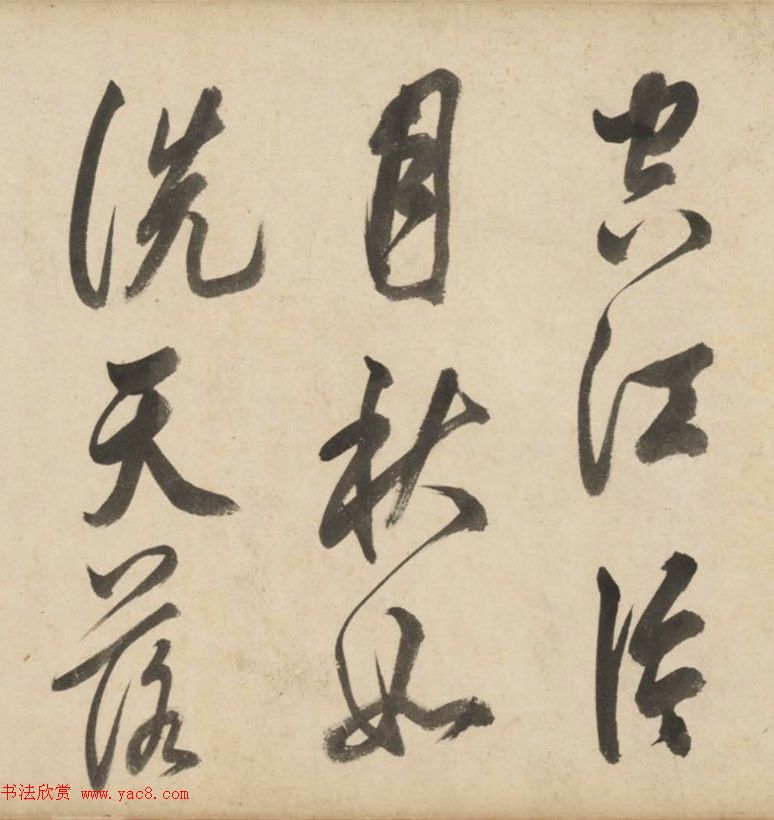 江
月秋如
洗天落
书法欣赏 www.yac8.com